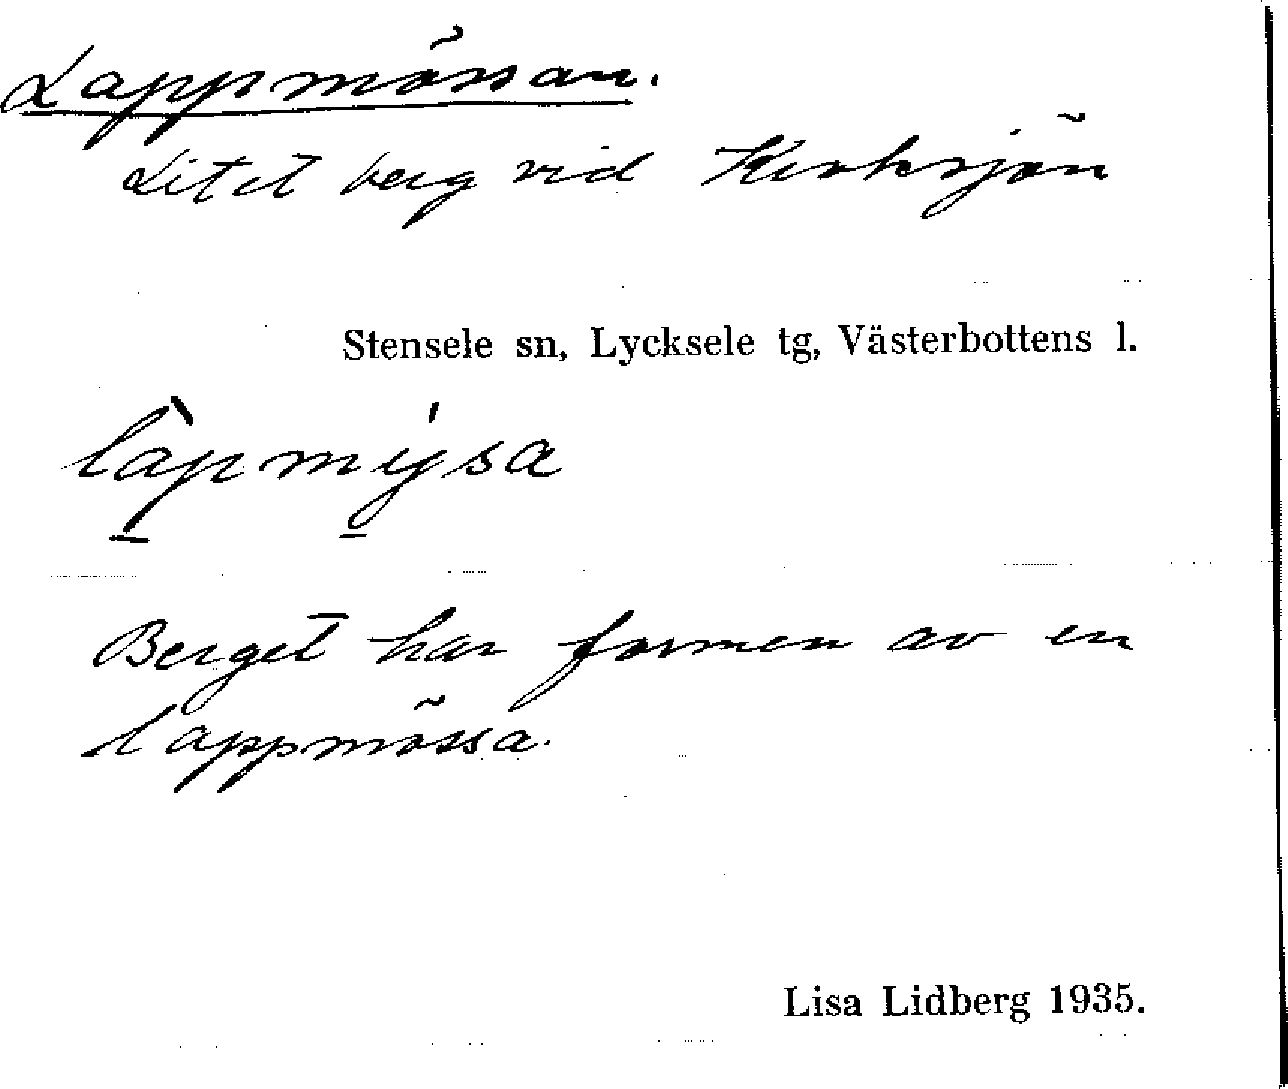 Lappmössan.
Litet berg vid Kroksjön
Stensele sn, Lycksele tg, Västerbottens l.
låpmysa
Berget har formen av en
lappmössa.
Lisa Lidberg 1935.